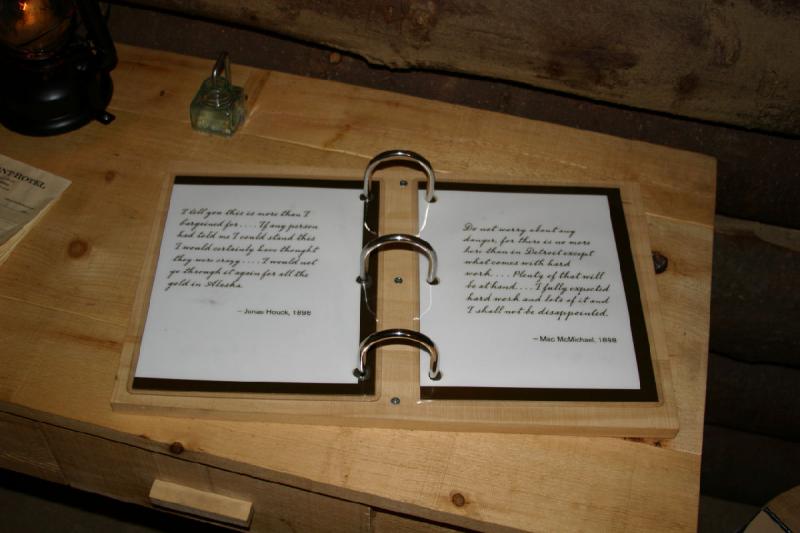 NT HOTEL
I tell you this is more than I
bargained for.... If any person
had told me I could stand this
I would certainly have thought
they were crazy.... I would not
go through it again for all the
gold in Alaska.
– Jonas Houck, 1898
Do not worry about any
danger, for there is no more
here than in Detroit except
what comes with hard
work.... Plenty of that will
be at hand.... I fully expected
hard work and lots of it and
I shall not be disappointed.
– Mac McMichael, 1898